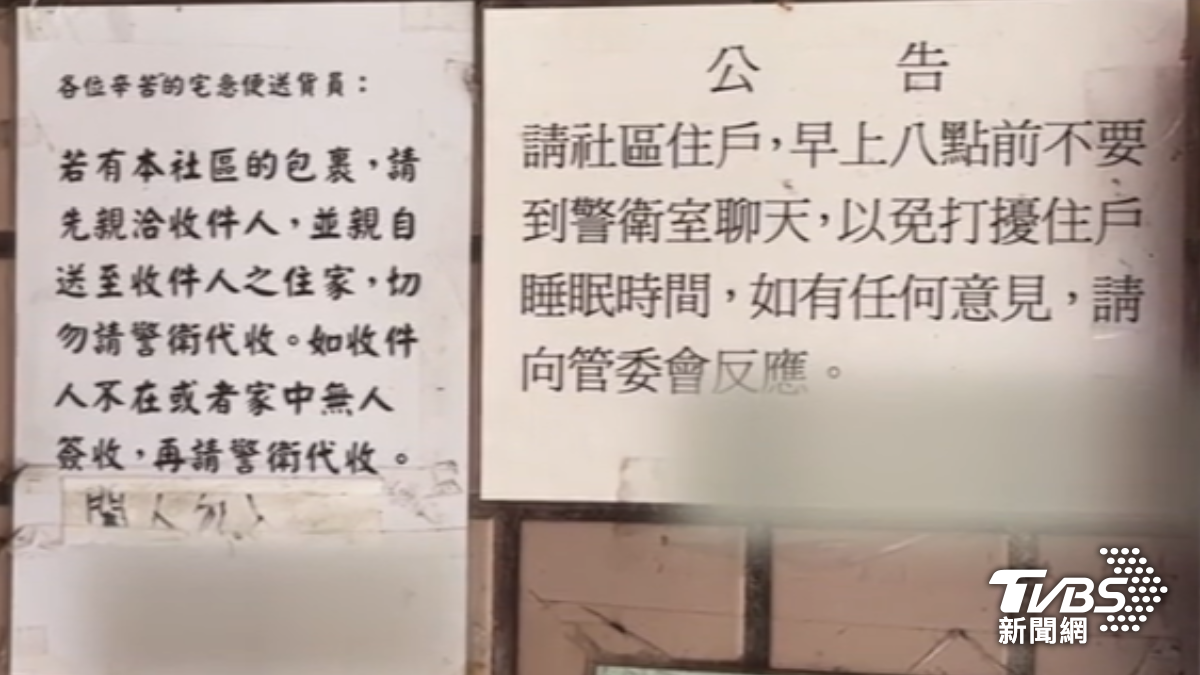 各位辛苦的宅急便送貨員：
若有本社區的包裹，請
先親洽收件人，並親自
送至收件人之住家，切
勿請警衛代收。如收件
人不在或者家中無人
簽收，再請警衛代收。
公告
請社區住戶，早上八點前不要
到警衛室聊天，以免打擾住戶
睡眠時間，如有任何意見，請
向管委會反應。
TVBS
新聞網